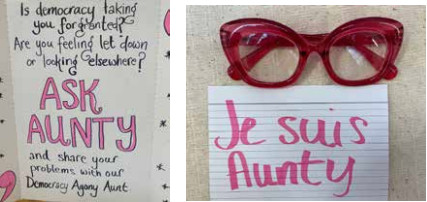 Is democracy taking
you for granted?
Are you feeling let down
or looking elsewhere?
ASK
AUNTY
and share your
problems with our
Democracy Agony Aunt
Je suis
Aunty